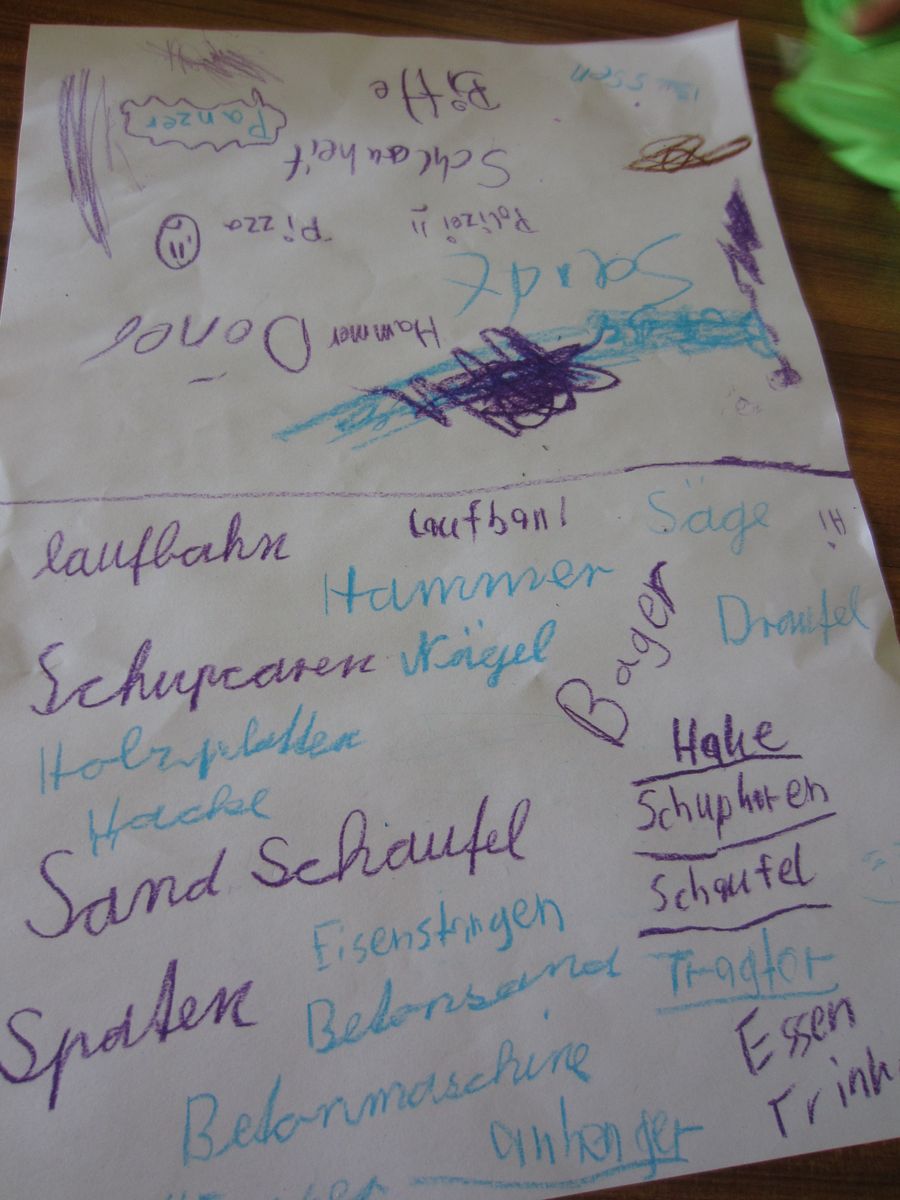 Bitte
Panzer
Schlauheit
Polizei !!
Pizza
Hammer
Döner
laufbahn
Säge
Hi
Hammer
Bager
Draufel
Schupcaren
Nägel
Holzplatten
Hake
Hacke
Schupkaren
Sand Schaufel
Schaufel
Eisenstangen
Tragtor
Spaten
Betonsand
Essen
Betonmaschine
Trink
anhänger